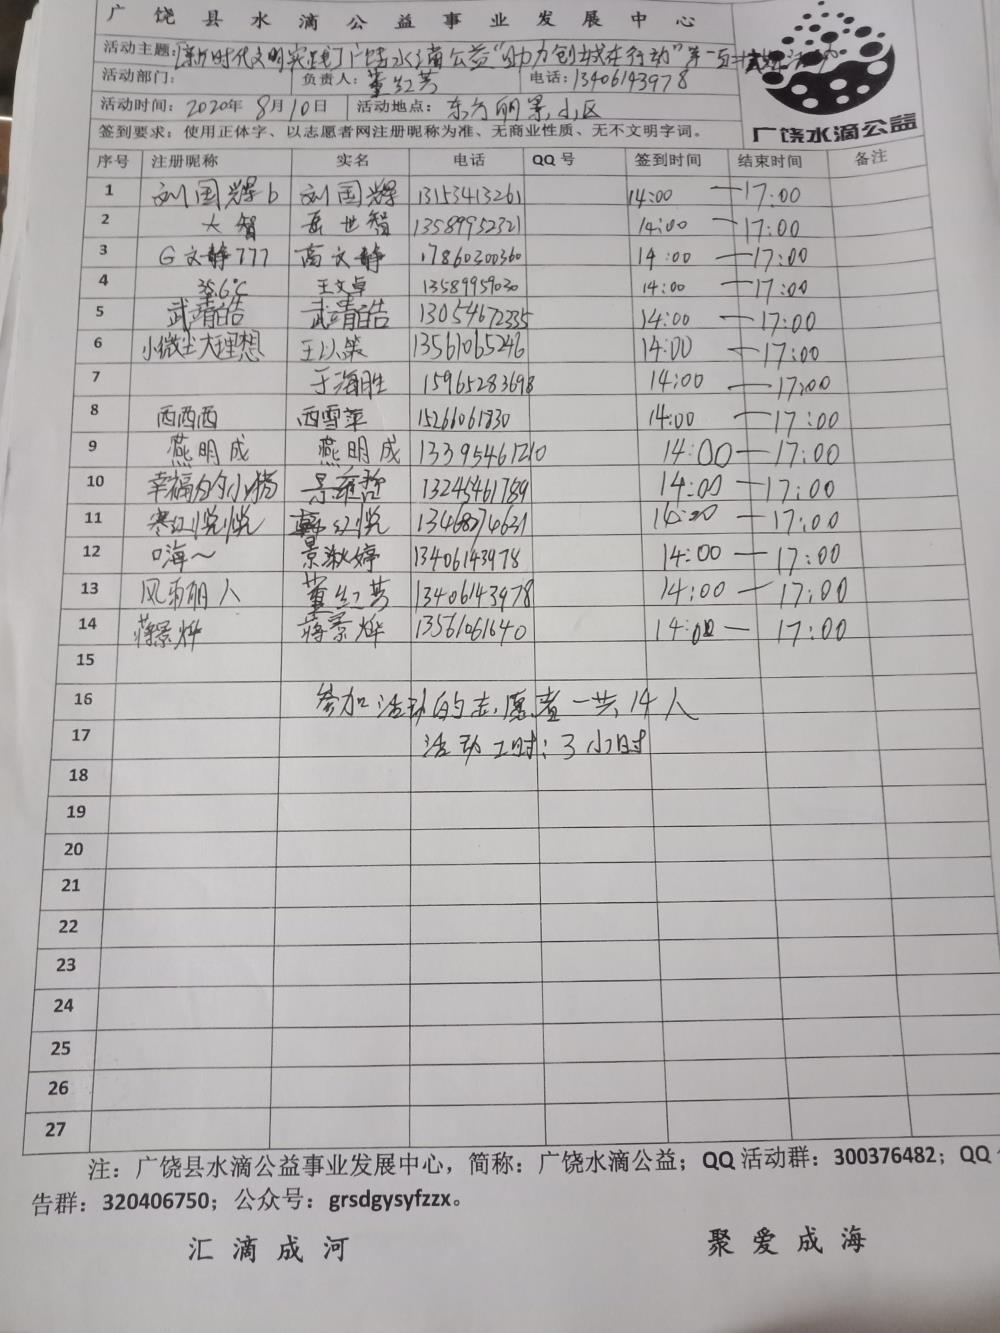 广饶县水滴公益事业发展中心
活动主题：[新时代文明实践]广饶水滴公益“助力创城在行动”第一百
活动部门： 负责人：董红芳 电话：13406143978
活动时间：2020年8月10日 活动地点：东方丽景小区
签到要求：使用正体字、以志愿者网注册昵称为准、无商业性质、无不文明字词。
广饶水滴公益
序号 注册昵称 实名 电话 QQ号 签到时间 结束时间 备注
1 刘国辉b 刘国辉 13153413261 14:00 一17:00
2 大智 岳世智 13589952321 14:00 一17:00
3 G文静777 高文静 17860300360 14:00 一17:00
4 36.6°C 王文卓 13589959030 14:00 一17:00
5 武靖皓 武靖皓 13054672335 14:00 一17:00
6 小微尘大理想 王以策 13561065246 14:00 一17:00
7 于海胜 15965283698 14:00 一17:00
8 西西西 西雪萍 15266061830 14:00 一17:00
9 燕明成 燕明成 13395461210 14:00 一17:00
10 幸福的小猪 景雍哲 13245461789 14:00 一17:00
11 寒红悦悦 红悦 13468274631 14:00 一17:00
12 嗨～ 景淑婷 13406143978 14:00 一17:00
13 风雨丽人 董红芳 13406143978 14:00 一17:00
14 蒋景烨 蒋景烨 13561061640 14:00 一 17:00
15
16 参加活动的志愿者一共14人
17 活动工时：3小时
18
19
20
21
22
23
24
25
26
27
注：广饶县水滴公益事业发展中心，简称：广饶水滴公益；QQ活动群：300376482；QQ
告群：320406750；公众号：grsdgysyfzzx。
汇滴成河 聚爱成海